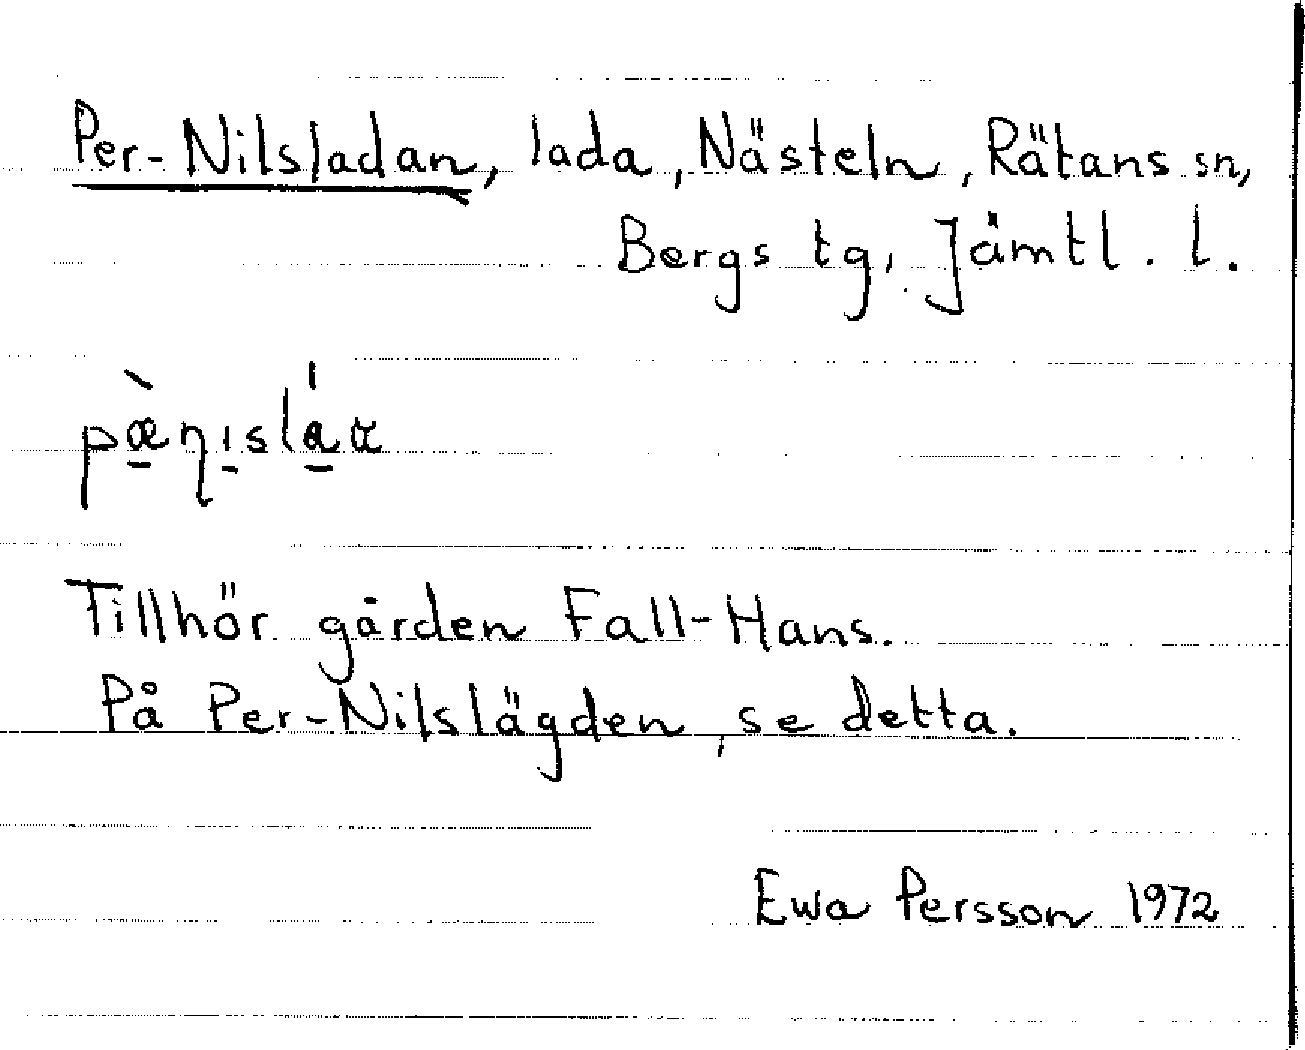 Per-Nilsladan, lada, Nästeln, Rätans sn,
Bergs tg, Jämtl. l.
pæ̠̀ɳi̠sla̠̍α
Tillhör gården Fall-Hans.
På Per-Nilslägden, se detta.
Ewa Persson 1972